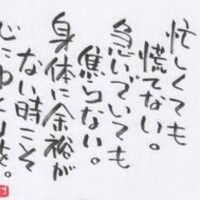 忙しくても
慌てない。
急いでいても
焦らない。
身体に余裕が
ない時こそ
心にゆとりを。